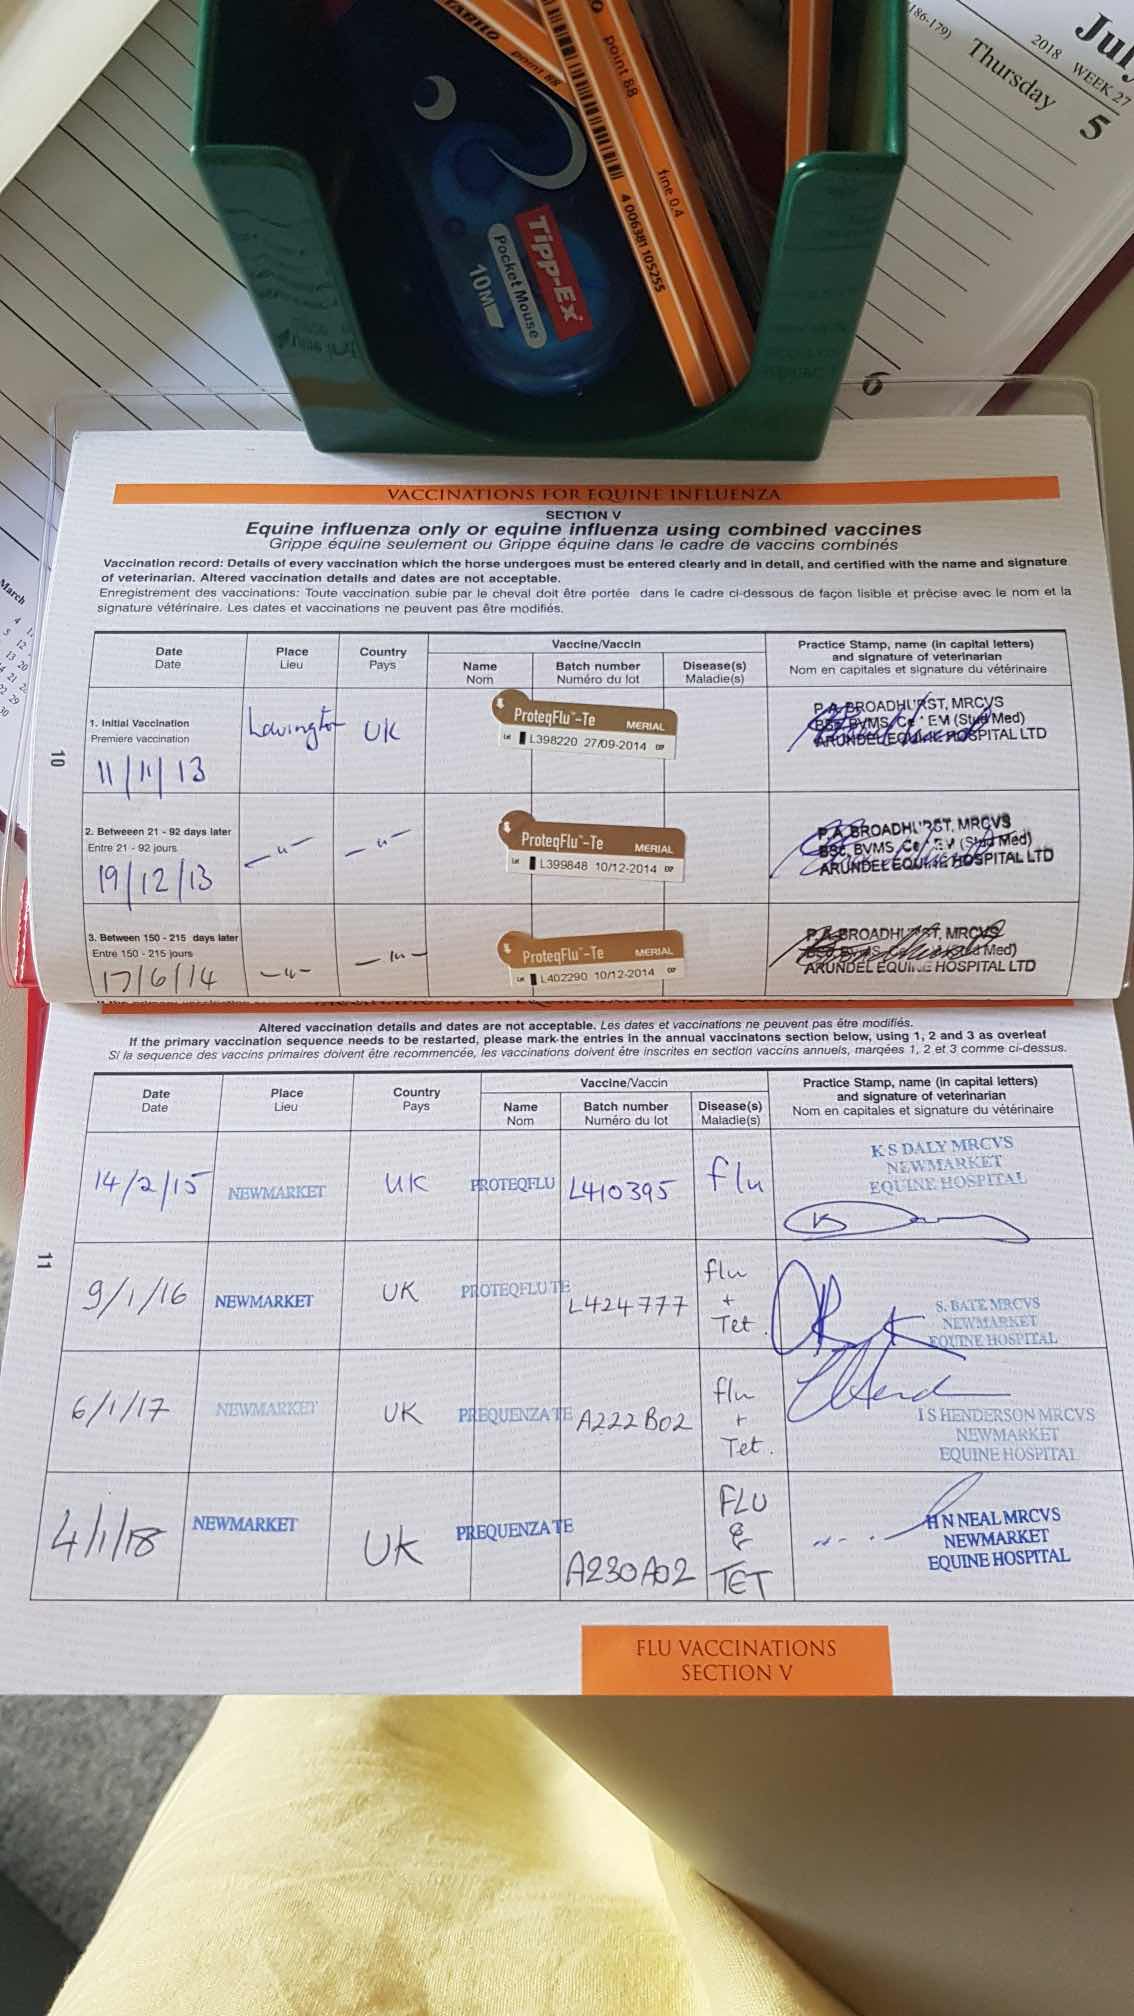 STABILO point 88
point 88
fine 0.4
4 006381 105255
Tipp-Ex
Pocket Mouse
10M
(186-179)
2018 WEEK 27
Thursday
5
6
March
10
VACCINATIONS FOR EQUINE INFLUENZA
SECTION V
Equine influenza only or equine influenza using combined vaccines
Grippe équine seulement ou Grippe équine dans le cadre de vaccins combinés
Vaccination record: Details of every vaccination which the horse undergoes must be entered clearly and in detail, and certified with the name and signature
of veterinarian. Altered vaccination details and dates are not acceptable.
Enregistrement des vaccinations: Toute vaccination subie par le cheval doit être portée dans le cadre ci-dessous de façon lisible et précise avec le nom et la
signature vétérinaire. Les dates et vaccinations ne peuvent pas être modifiés.
Date Place Country Vaccine/Vaccin Practice Stamp, name (in capital letters)
Date Lieu Pays Name Batch number Disease(s) and signature of veterinarian
Nom Numéro du lot Maladie(s) Nom en capitales et signature du vétérinaire
1. Initial Vaccination
Premiere vaccination
11/11/13 UK
ProteqFlu™-Te MERIAL
Lot L398220 27/09/2014 EXP
P.A. BROADHURST, MRCVS
BSc, BVMS, Ce EM (Stud Med)
ARUNDEL EQUINE HOSPITAL LTD
2. Betweeen 21 - 92 days later
Entre 21 - 92 jours
19/12/13 -"- -"-
ProteqFlu™-Te MERIAL
Lot L399848 10/12-2014 EXP
P.A. BROADHURST, MRCVS
BSc, BVMS, Ce EM (Stud Med)
ARUNDEL EQUINE HOSPITAL LTD
3. Between 150 - 215 days later
Entre 150 - 215 jours
17/6/14 -"- -"-
ProteqFlu™-Te MERIAL
Lot L402290 10/12-2014 EXP
P.A. BROADHURST, MRCVS
Med)
ARUNDEL EQUINE HOSPITAL LTD
11
Altered vaccination details and dates are not acceptable. Les dates et vaccinations ne peuvent pas être modifiés.
If the primary vaccination sequence needs to be restarted, please mark the entries in the annual vaccinatons section below, using 1, 2 and 3 as overleaf
Si la sequence des vaccins primaires doivent être recommencée, les vaccinations doivent être inscrites en section vaccins annuels, marqées 1, 2 et 3 comme ci-dessus.
Date Place Country Vaccine/Vaccin Practice Stamp, name (in capital letters)
Date Lieu Pays Name Batch number Disease(s) and signature of veterinarian
Nom Numéro du lot Maladie(s) Nom en capitales et signature du vétérinaire
14/2/15 NEWMARKET UK PROTEQFLU L410395 flu
K S DALY MRCVS
NEWMARKET
EQUINE HOSPITAL
9/1/16 NEWMARKET UK PROTEQFLU TE L424777 flu + Tet.
S. BATE MRCVS
NEWMARKET
EQUINE HOSPITAL
6/1/17 NEWMARKET UK PREQUENZA TE A222B02 flu + Tet.
I S HENDERSON MRCVS
NEWMARKET
EQUINE HOSPITAL
4/1/18 NEWMARKET UK PREQUENZA TE A230A02 FLU & TET
H N NEAL MRCVS
NEWMARKET
EQUINE HOSPITAL
FLU VACCINATIONS
SECTION V